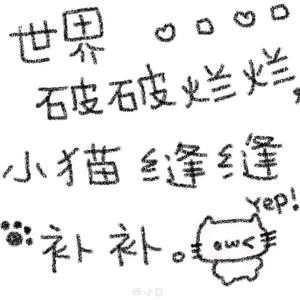 世界
破破烂烂
小猫缝缝
补补。
yep!
@小喵